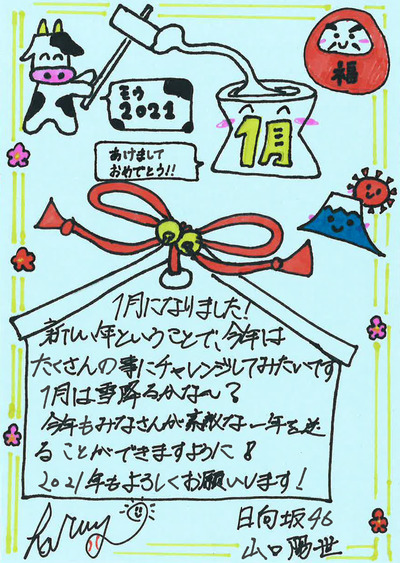 モウ
2021
あけまして
おめでとう!!
1月
福
1月になりました!
新しい年ということで、今年は
たくさんの事にチャレンジしてみたいです
1月は雪降るかな〜?
今年もみなさんが素敵な一年を送
ることができますように!
2021年もよろしくお願いします!
日向坂46
山口陽世